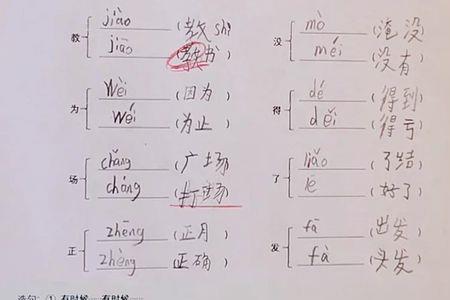 教 jiào (教 shī)
jiāo (教书)
为 wèi (因为)
wéi (为止)
场 chǎng (广场)
cháng (打场)
正 zhēng (正月)
zhèng (正确)
没 mò (淹没)
méi (没有)
得 dé (得到)
děi (得亏)
了 liǎo (了结)
le (好了)
发 fā (出发)
fà (头发)
造句：(1) 有时候……有时候……